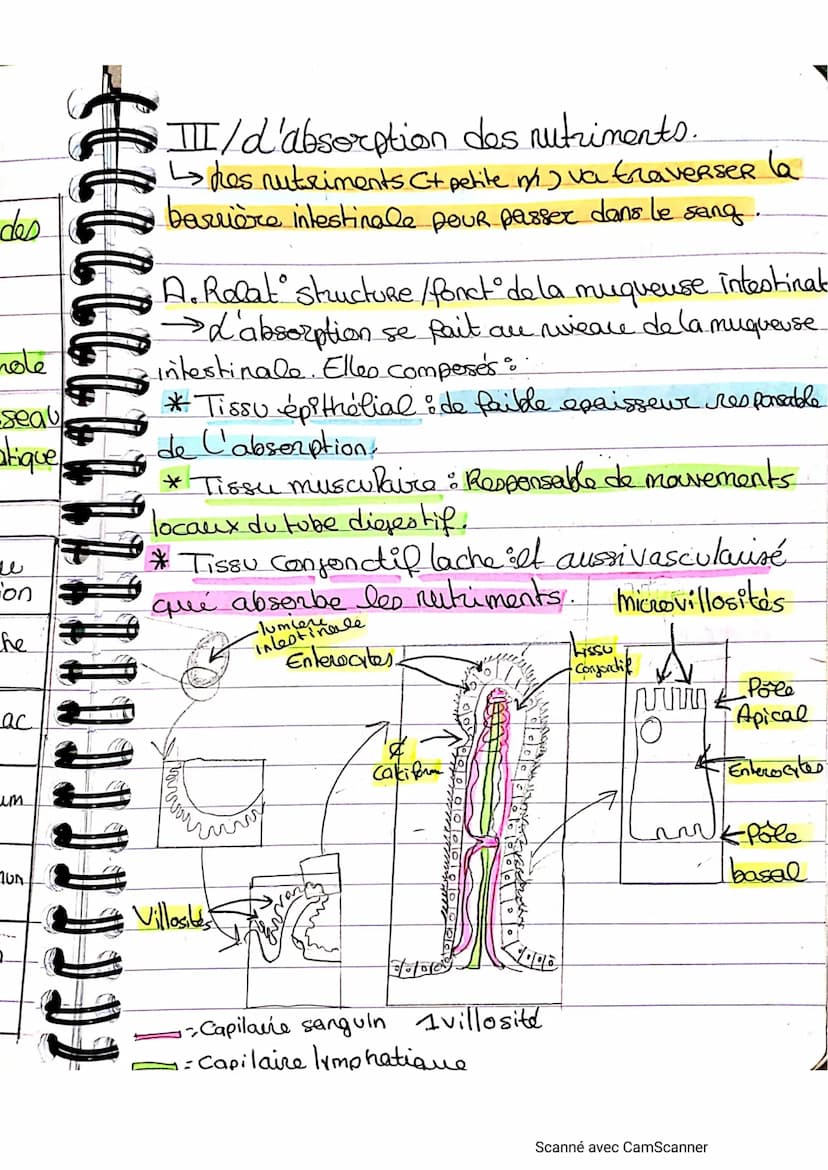 III/L'absorption des nutriments.
↳ Les nutriments (+ petite m) va traverser la
barrière intestinale pour passer dans le sang.
A. Relat° structure/fonct° de la muqueuse intestinal
→ L'absorption se fait au niveau de la muqueuse
intestinale. Elles composés :
* Tissu épithélial : de faible epaisseur responsable
de l'absorption.
* Tissu musculaire : Responsable de mouvements
locaux du tube digestif.
* Tissu conjonctif lache : et aussi vascularisé
qui absorbe les nutriments.
microvillosités
lumière
intestinale
Enterocytes
tissu
conjonctif
Pôle
Apical
Enterocytes
Pôle
basal
Villosités
= Capilaire sanguin 1 villosité
= Capilaire lymphatique
des
seau
atique
ion
he
ac
um
Scanné avec CamScanner